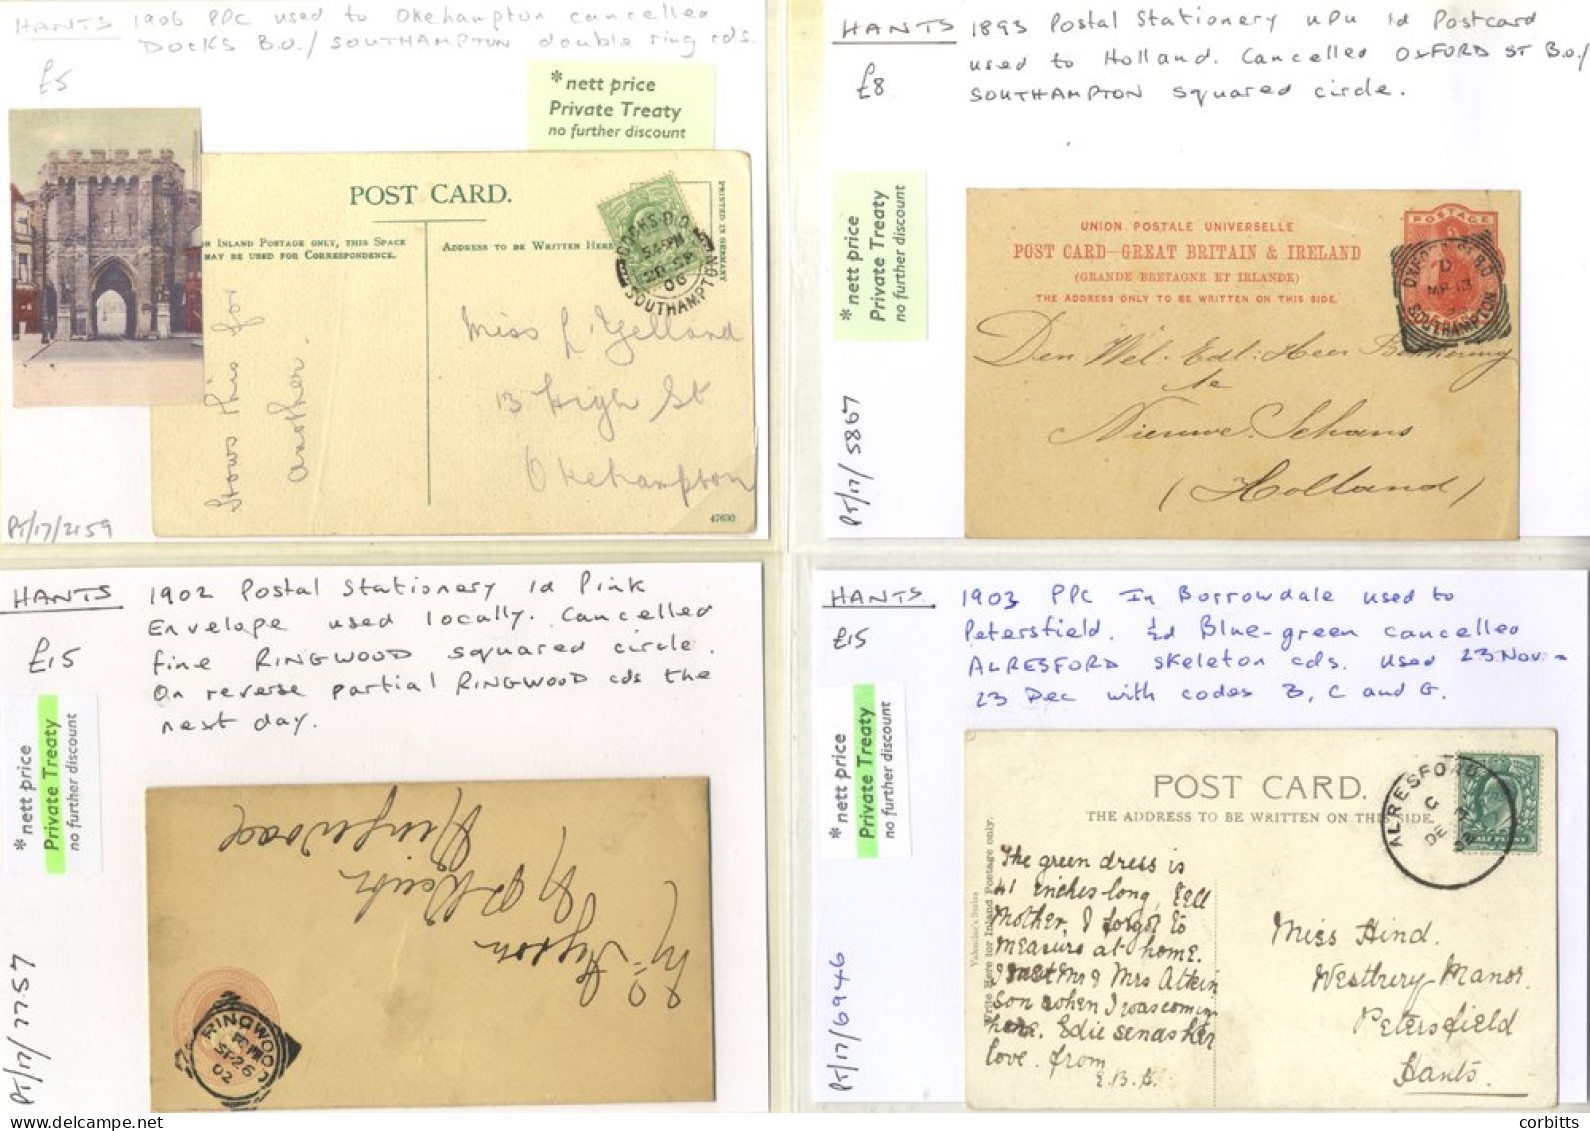 HANTS 1906 PPC used to Okehampton cancelled
DOCKS B.O./SOUTHAMPTON double ring cds.
£5
* nett price
Private Treaty
no further discount
POST CARD.
INLAND POSTAGE ONLY, THIS SPACE
MAY BE USED FOR CORRESPONDENCE.
ADDRESS TO BE WRITTEN HERE
PRINTED IN GERMANY
DOCKS B.O.
5.45PM
06
SOUTHAMPTON
Miss L. Yelland
13 High St
Okehampton
Stows this for
another.
47630
PT/17/2159
HANTS 1893 Postal Stationery UPU 1d Postcard
used to Holland. Cancelled OXFORD ST B.O./
SOUTHAMPTON squared circle.
£8
* nett price
Private Treaty
no further discount
UNION POSTALE UNIVERSELLE
POST CARD—GREAT BRITAIN & IRELAND
(GRANDE BRETAGNE ET IRLANDE)
THE ADDRESS ONLY TO BE WRITTEN ON THIS SIDE.
POSTAGE
OXFORD ST B.O
D
MR 13
SOUTHAMPTON
Den Wel. Edl: Heer
te
Nieuwe. Schans
(Holland)
PT/17/5867
HANTS 1902 Postal Stationery 1d Pink
Envelope used locally. Cancelled
fine RINGWOOD squared circle.
On reverse partial RINGWOOD cds the
next day.
£15
* nett price
Private Treaty
no further discount
Ringwood
RINGWOOD
SP 26
02
PT/17/7757
HANTS 1903 PPC In Borrowdale used to
Petersfield. ½d Blue-green cancelled
ALRESFORD skeleton cds. Used 23 Nov -
23 Dec with codes B, C and G.
£15
* nett price
Private Treaty
no further discount
POST CARD.
THE ADDRESS TO BE WRITTEN ON THIS SIDE.
Valentine's Series
Write Here for Inland Postage only.
ALRESFORD
G
DE
HALF PENNY
The green dress is
41 inches long, tell
Mother, I forgot to
measure at home.
I met Mr & Mrs Atkin
son when I was coming
here. Edie sends her
love. from
E.B.B.
Miss Hind.
Westbury Manor.
Petersfield
Hants.
PT/17/6946
corbitts